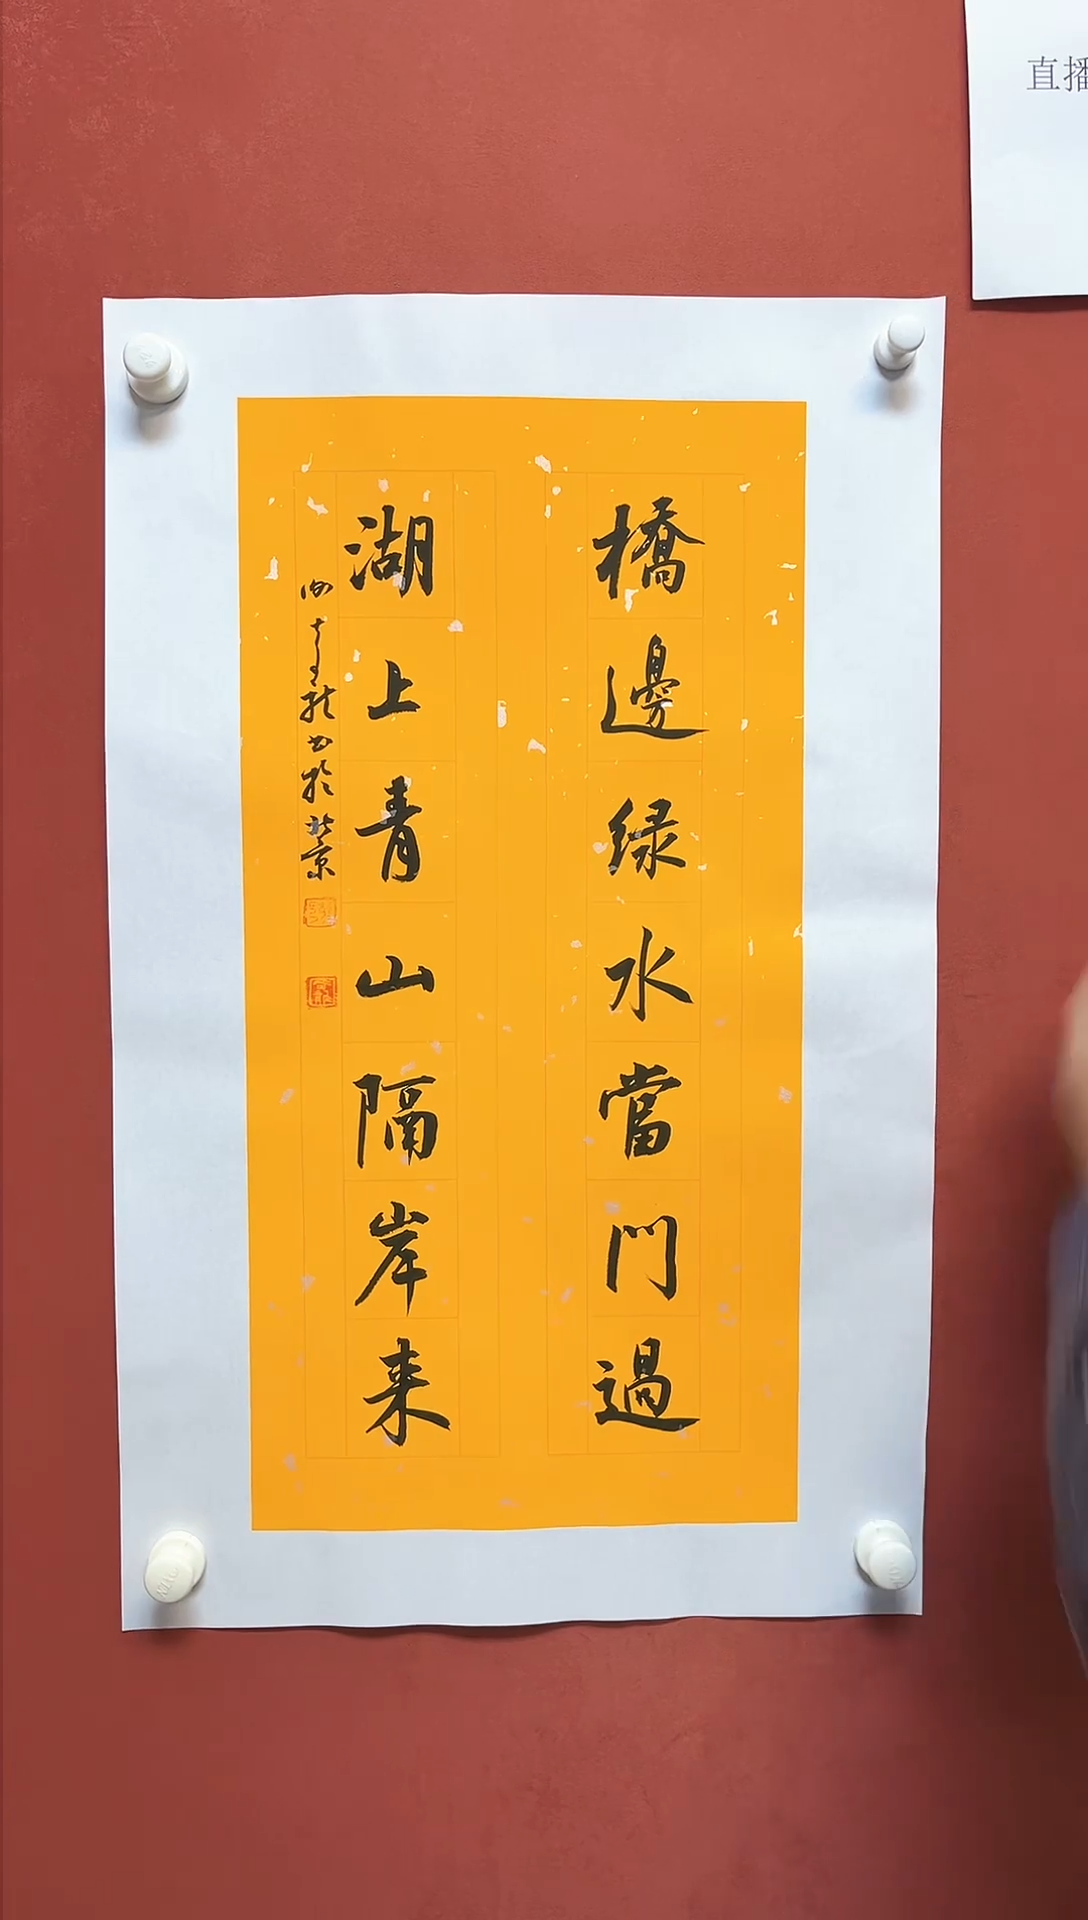 橋邊绿水當門過
湖上青山隔岸来
書於北京
直播